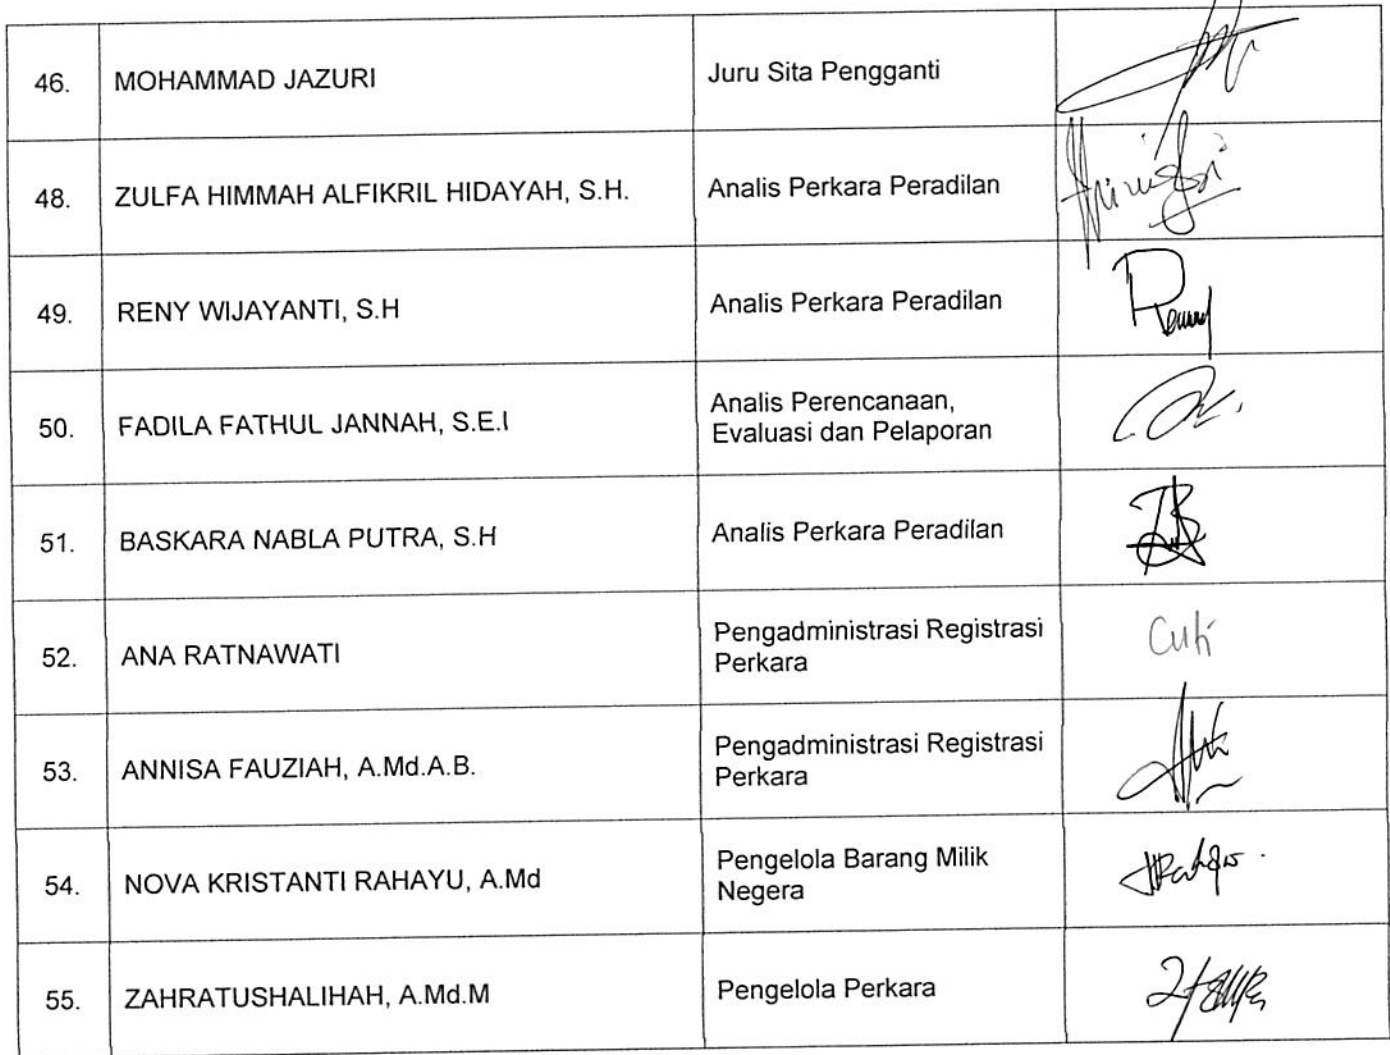 46. MOHAMMAD JAZURI Juru Sita Pengganti
48. ZULFA HIMMAH ALFIKRIL HIDAYAH, S.H. Analis Perkara Peradilan
49. RENY WIJAYANTI, S.H Analis Perkara Peradilan
50. FADILA FATHUL JANNAH, S.E.I Analis Perencanaan,
Evaluasi dan Pelaporan
51. BASKARA NABLA PUTRA, S.H Analis Perkara Peradilan
52. ANA RATNAWATI Pengadministrasi Registrasi
Perkara Cuti
53. ANNISA FAUZIAH, A.Md.A.B. Pengadministrasi Registrasi
Perkara
54. NOVA KRISTANTI RAHAYU, A.Md Pengelola Barang Milik
Negera
55. ZAHRATUSHALIHAH, A.Md.M Pengelola Perkara